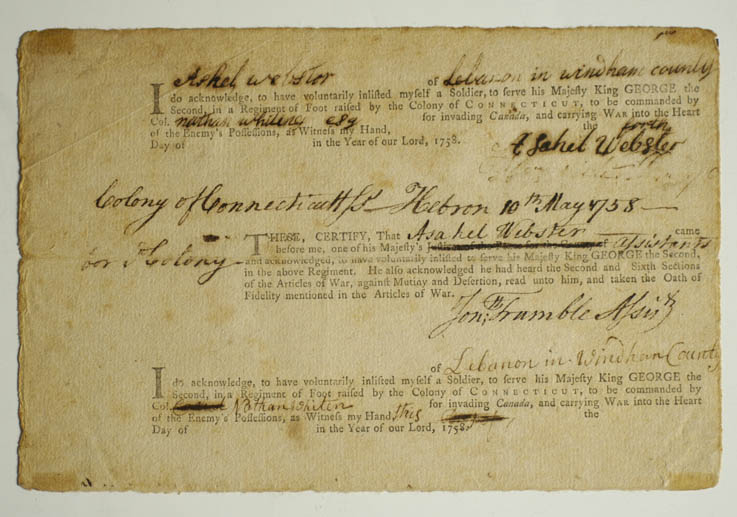 I Ashel webstor of Lebanon in windham county
do acknowledge, to have voluntarily inlisted myself a Soldier, to serve his Majesty King GEORGE the
Second, in a Regiment of Foot raised by the Colony of CONNECTICUT, to be commanded by
Col. nathan whiting esq for invading Canada, and carrying WAR into the Heart
of the Enemy's Possessions, as Witness my Hand, the
Day of in the Year of our Lord, 1758.
Asahel Webster
Colony of Connecticutt Ss Hebron 10th May 1758
THESE, CERTIFY, That Asahel Webster came
before me, one of his Majesty's assistants
for s Colony and acknowledged, to have voluntarily inlisted to serve his Majesty KING GEORGE the Second,
in the above Regiment. He also acknowledged he had heard the Second and Sixth Sections
of the Articles of War, against Mutiny and Desertion, read unto him, and taken the Oath of
Fidelity mentioned in the Articles of War.
Jonth Trumble Assist
I of Lebanon in Windham County
do acknowledge, to have voluntarily inlisted myself a Soldier, to serve his Majesty King GEORGE the
Second, in a Regiment of Foot raised by the Colony of CONNECTICUT, to be commanded by
Col. Nathan Whiten for invading Canada, and carrying WAR into the Heart
of the Enemy's Possessions, as Witness my Hand, this the
Day of in the Year of our Lord, 1758.